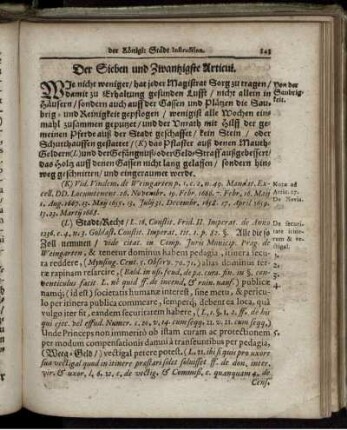 der Königl: Städt Instruction. 243
Der Sieben und Zwantzigste Articul.
WJe nicht weniger/ hat jeder Magistrat Sorg zu tragen/
damit zu Erhaltung gesunden Lufft/ nicht allein in
Häusern/ sondern auch auff der Gassen und Plätzen die Sau-
brig- und Reinigkeit gepflogen/ wenigist alle Wochen ein-
mahl zusammen geputzet/ und der Unrath mit Hilff der ge-
meinen Pferde auß der Stadt geschaffet/ kein Stein/ oder
Schütthauffen gestattet/ (K) das Pflaster auß denen Mauth-
Geldern (L) und der Gefängnuß- oder Geld-Straff außgebessert/
das Holtz auff denen Gassen nicht lang gelassen/ sondern hin-
weg geschnitten/ und eingeraumet werde.
Von der
Saubrig-
keit.
(K) Vid. Vindem. de Weingarten p. 1. c. 2, n. 49. Mandat. Ex-
cell. DD. Locumtenent. 26. Novemb. 19. Febr. 1666.
1. Aug. 1667. 13. Maij 1653. 13. Julij 31. Decemb. 1658. 17. April 1659.
13. 23. Martij 1668.
Nota ad
Artic. 27.
De Novis.
(L) Stadt-Recht/ L. 16. Constit. Frid. II. Imperat. de Anno
1236. c. 4. n. 3. Goldast. Constit. Imperat. tit. 1. p. 87. §. Alle die so
Zoll nemmen/ vide citat. in Comp. Juris Municip. Prag. de
Weingarten, & tenetur dominus habens pedagia, itinera secu-
ra reddere, (Mynsing. Cent. 5. Observ. 70. 71.) alias domini tene-
re rapinam resarcire, (Bald. in usu. feud. de pa. cura. fin. in §. con-
venticulas facit L. ut quid ff. de incend. & ruin. nauf.) publica
namq; (id est) societatis humanæ interest, sine metu, & pericu-
lo per itinera publica commeare, semperq; debent ea loca, quà
vulgo iter fit, et excurrentes habere, (L. 1. §. 1. 2. ff. de his
qui ejec. vel effud. Numer. c. 20. v. 14. cum seqq. 21. v. 22. cum seqq.)
Unde Princeps, non immeritò in statum curam ac protectionem
per modum compensationis damni à transeuntibus per pedagia,
(Weeg-Geld/) vectigal petere potest, (L. 21. th si quis pro uxore
sua vectigal quod in itinere præstari solet soluisset ff. de don. inter.
vir. & uxor, l. 6. v. c, de vectig. & Commiss. c. quanquam 4. de
De securi-
tate itine-
rum & ve-
ctigal.
Cens.